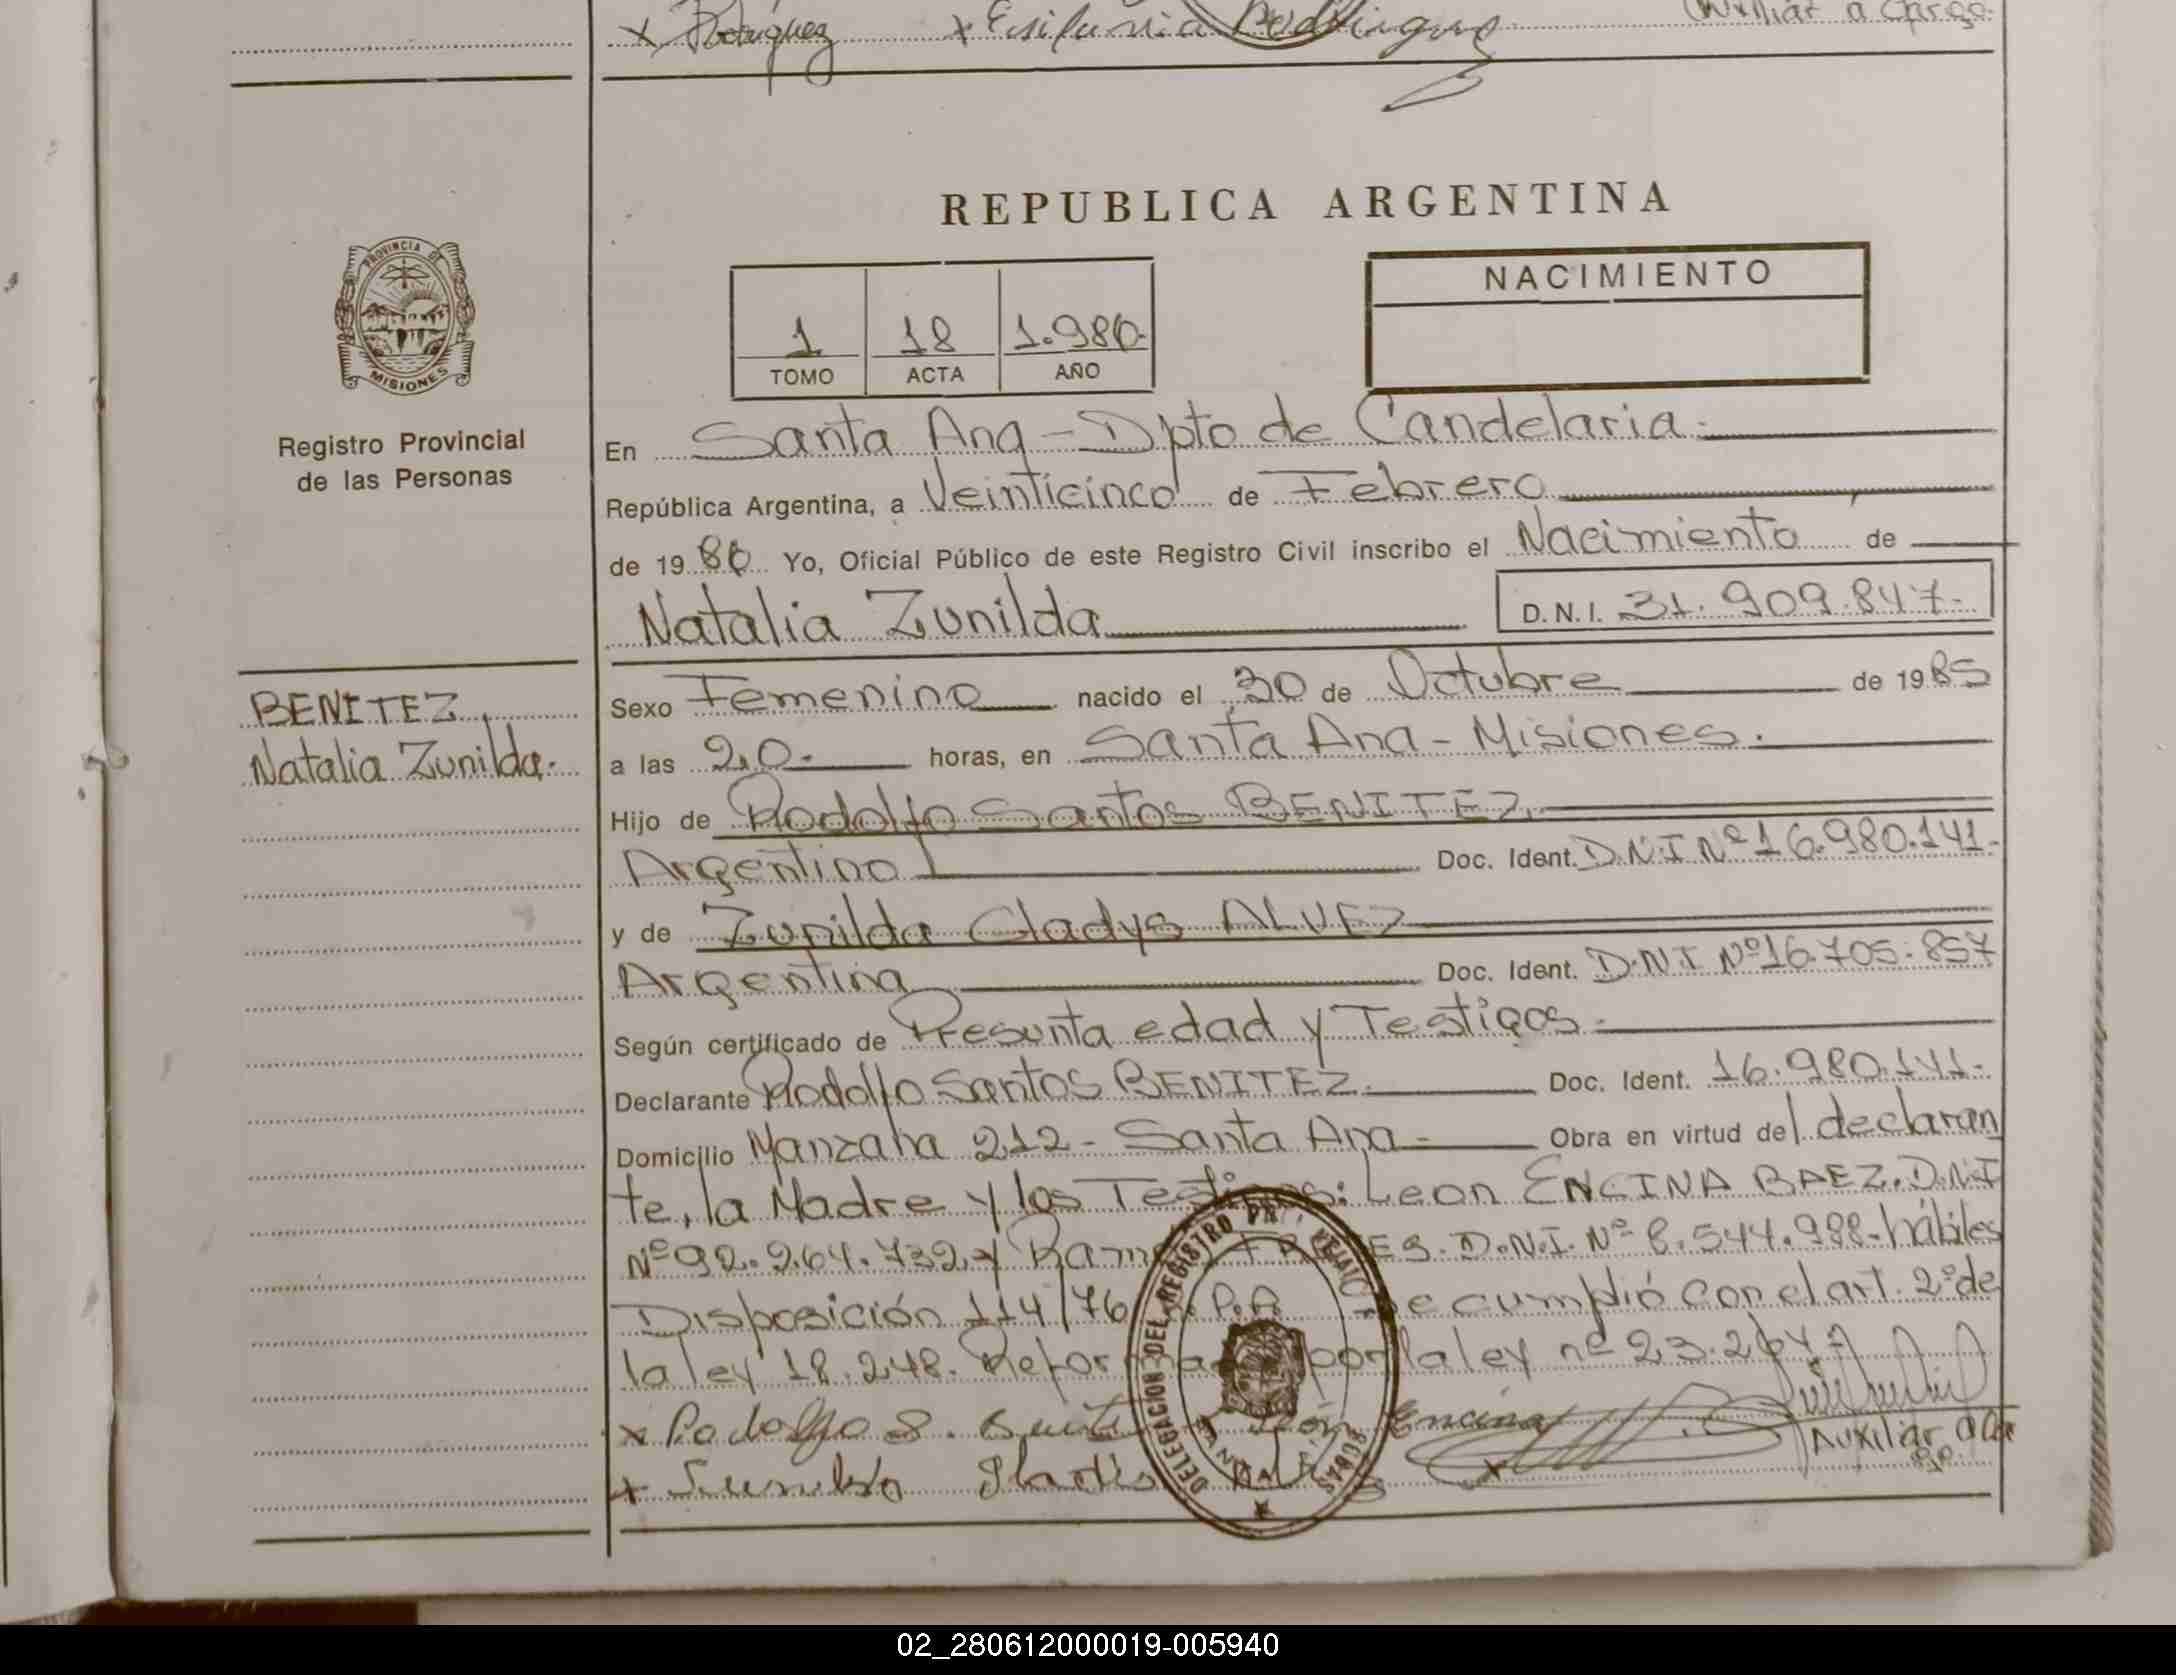 x Rodriguez x Rodriguez Auxiliar a Cargo.
REPUBLICA ARGENTINA
PROVINCIA DE MISIONES
Registro Provincial
de las Personas
NACIMIENTO
1 18 1.986.
TOMO ACTA AÑO
En Santa Ana - Dpto de Candelaria.
República Argentina, a Veinticinco de Febrero
de 1986 Yo, Oficial Público de este Registro Civil inscribo el Nacimiento de
Natalia Zunilda D.N.I. 31.909.847.
BENITEZ,
Natalia Zunilda.
Sexo Femenino nacido el 30 de Octubre de 1985
a las 2,0. horas, en Santa Ana - Misiones.
Hijo de Rodolfo Santos BENITEZ,
Argentino Doc. Ident. D.N.I Nº 16.980.141.
y de Zunilda Gladys ALVEZ
Argentina Doc. Ident. D.N.I Nº 16.705.857
Según certificado de Presunta edad y Testigos.
Declarante Rodolfo Santos BENITEZ. Doc. Ident. 16.980.141.
Domicilio Manzana 212 - Santa Ana - Obra en virtud del declaran
te, la Madre y los Testigos: Leon ENCINA BAEZ. D.N.I
Nº 92.264.732 y D.N.I. Nº 8.544.988 - hábiles
Disposición 114/76 R.P.P. Se cumplió con el art. 2º de
la ley 18.248. Reformada por la ley nº 23.264.
x Rodolfo S. Benitez León Encina
x Sunilda Gladis x Auxiliar a Car
go.
DELEGACION DEL REGISTRO
SANTA ANA
02_280612000019-005940